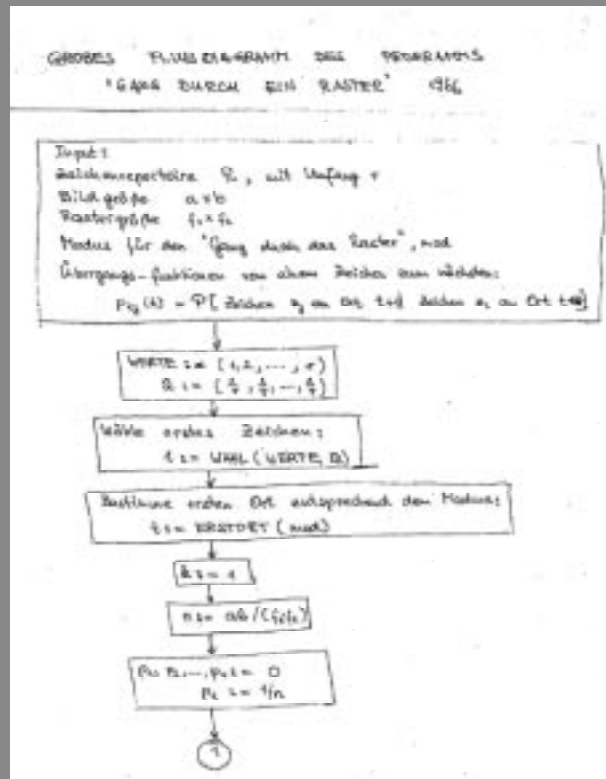 GROBES FLUSSDIAGRAMM DES PROGRAMMS
"GANG DURCH EIN RASTER" 1966
Input:
Zeichenrepertoire , mit Umfang r
Bildgröße a × b
Rastergröße
Modus für den "Gang durch das Raster", mod
Übergangs-funktionen von einem Zeichen zum nächsten:
(t) = P[ Zeichen an Ort t+1 Zeichen an Ort
WERTE := (1,2,...,r)
:= (
Wähle erstes Zeichen:
:= WAHL (WERTE,
Bestimme ersten Ort entsprechend dem Modus:
t := ERSTORT (mod)
:= 1
n := ab/(
:= 0
:= 1/n
1